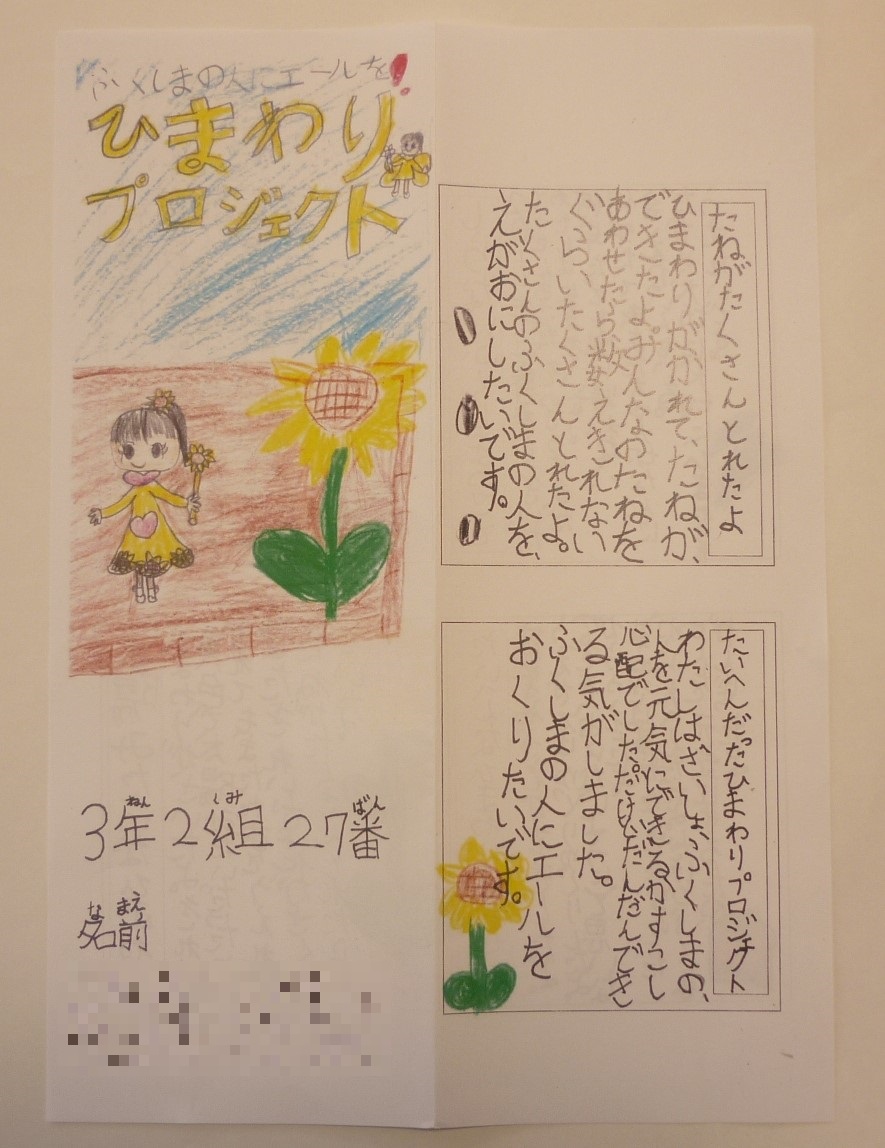 ふくしまの人にエールを!
ひまわり
プロジェクト
ねん くみ ばん
3年2組27番
な まえ
名前
たねがたくさんとれたよ
ひまわりがかれて、たねが、
できたよ。みんなのたねを
あわせたら数えきれない
ぐらいたくさんとれたよ。
たくさんのふくしまの人を、
えがおにしたいです。
たいへんだったひまわりプロジェクト
わたしはさいしょ、ふくしまの、
人を元気にできるかすこし
心配でした。だけどだんだんでき
る気がしました。
ふくしまの人にエールを
おくりたいです。